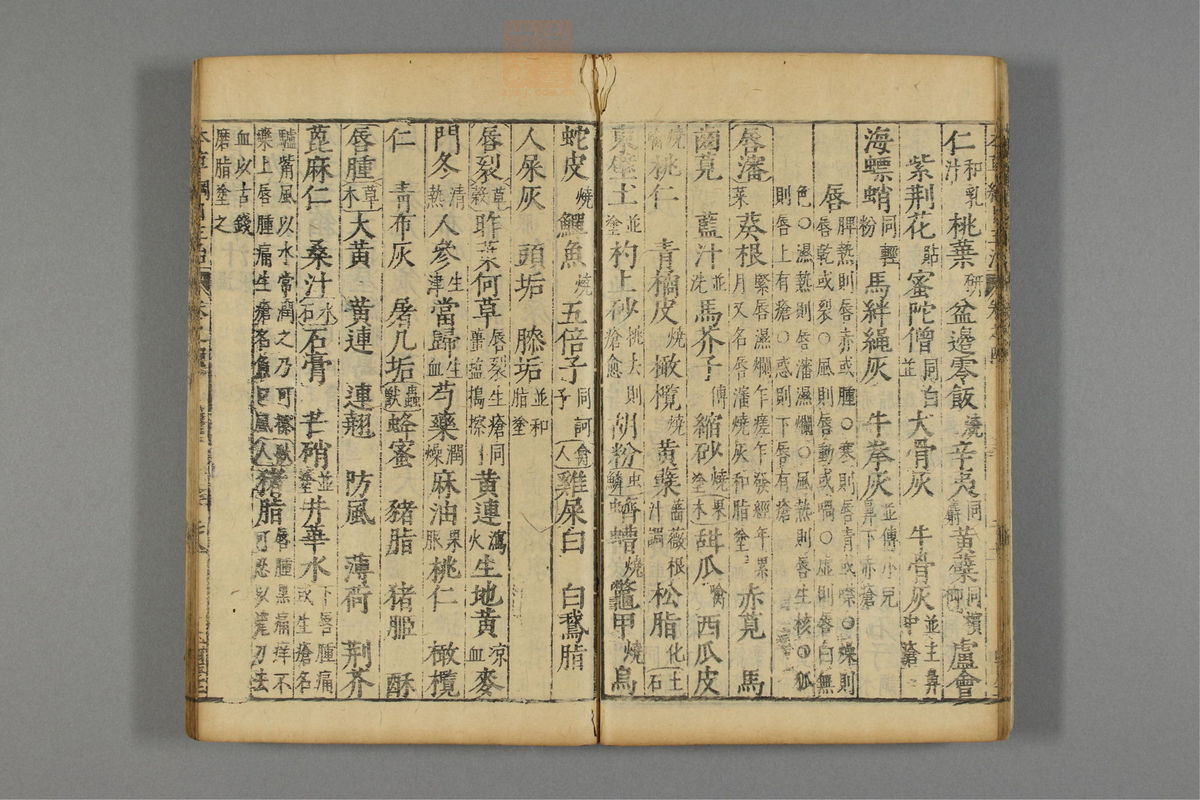 仁和乳汁 桃葉研 盆邊零飯燒 辛夷同麝 黃蘗同檳榔 盧會
紫荊花貼 蜜陀僧同白並 犬骨灰 牛骨灰並主鼻中瘡
海螵蛸同輕粉 馬絆繩灰 牛拳灰並傅小兒鼻下赤瘡
唇脾熱則唇赤或腫○寒則唇青或噤○燥則唇乾或裂○風則唇動或喎○虛則唇白無
色○濕熱則唇瀋濕爛○風熱則唇生核○狐則唇上有瘡○惑則下唇有瘡
唇瀋 草 葵根緊唇濕爛乍瘥乍發經年累月又名唇瀋燒灰和脂塗 赤莧 馬
齒莧 藍汁並洗 馬芥子傅 縮砂燒塗 果木 甜瓜噙 西瓜皮
燒噙 桃仁 青橘皮燒 橄欖燒 黃蘗薔薇根汁調 松脂化 土石
東壁土並塗 杓上砂挑去則瘡愈 胡粉 蟲鱗 蠐螬燒 鱉甲燒 烏
蛇皮燒 鱓魚燒 五倍子同訶子 禽人 雞屎白 白鵝脂
人屎灰 頭垢 膝垢並和脂塗
唇裂 草穀 昨葉何草唇裂生瘡同薑鹽搗擦 黃連瀉火 生地黃涼血 麥
門冬清熱 人參生津 當歸生血 芍藥潤燥 麻油 果服 桃仁 橄欖
仁 青布灰 屠几垢 蟲獸 蜂蜜 豬脂 猪胰 酥
唇腫 草木 大黃 黃連 連翹 防風 薄荷 荊芥
蓖麻仁 桑汁 水石 石膏 芒硝並塗 井華水下唇腫痛或生瘡名
驢觜風以水常潤之乃可擦 獸人 豬脂唇腫黑痛痒不可忍以瓷刀去
藥上唇腫痛生瘡名魚口風
血以古錢
磨脂塗之